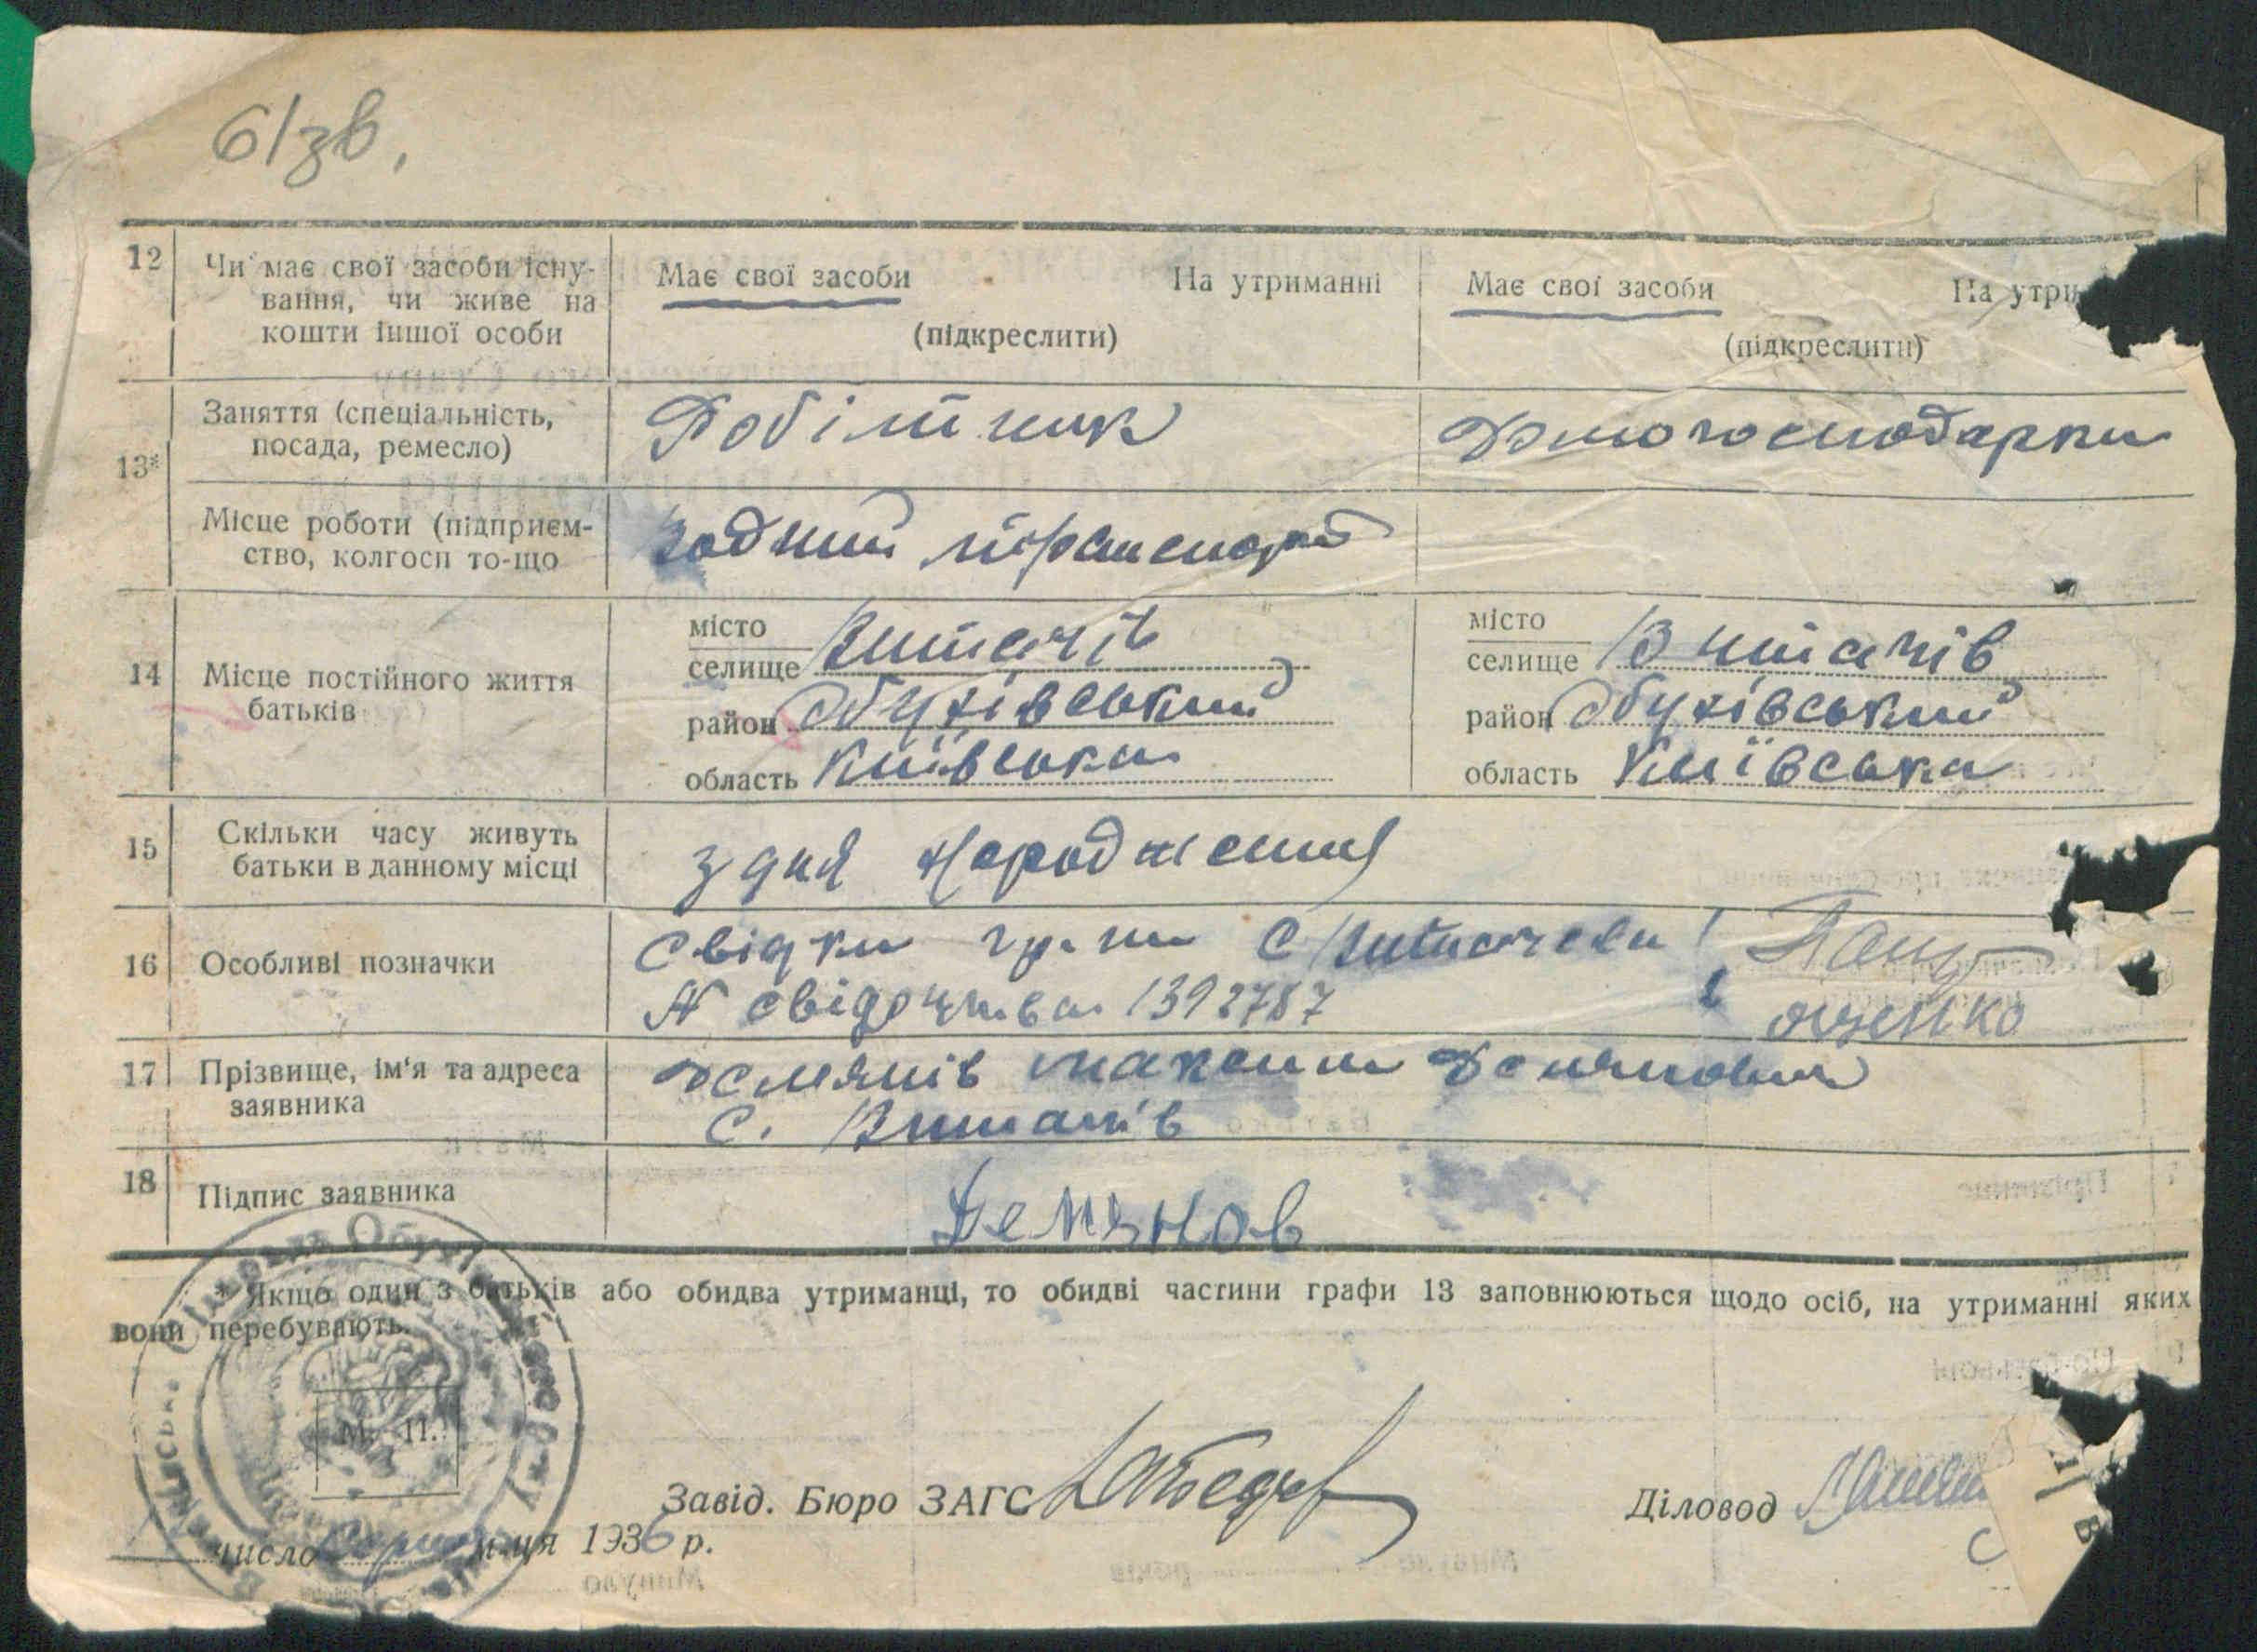 6/зв.
12 Чи має свої засоби існу- Має свої засоби На утриманні Має свої засоби На утри
вання, чи живе на
кошти іншої особи (підкреслити) (підкреслити)
13* Заняття (спеціальність, Робітник Домогосподарка
посада, ремесло)
Місце роботи (підприєм- Водний транспорт
ство, колгосп то-що
14 Місце постійного життя
батьків
місто
селище Витачів
район Обухівський
область Київська
місто
селище Витачів
район Обухівський
область Київська
15 Скільки часу живуть
батьки в данному місці
з дня народження
16 Особливі позначки
Свідки гр-ни с Витачева
N свідоцтва 1392787
17 Прізвище, ім'я та адреса
заявника
Демянів Максим Демянович
с. Витачів
18 Підпис заявника Демянов
* Якщо один з батьків або обидва утриманці, то обидві частини графи 13 заповнюються щодо осіб, на утриманні яких
вони перебувають.
М. П.
Завід. Бюро ЗАГС Діловод
число м-ця 1936 р.